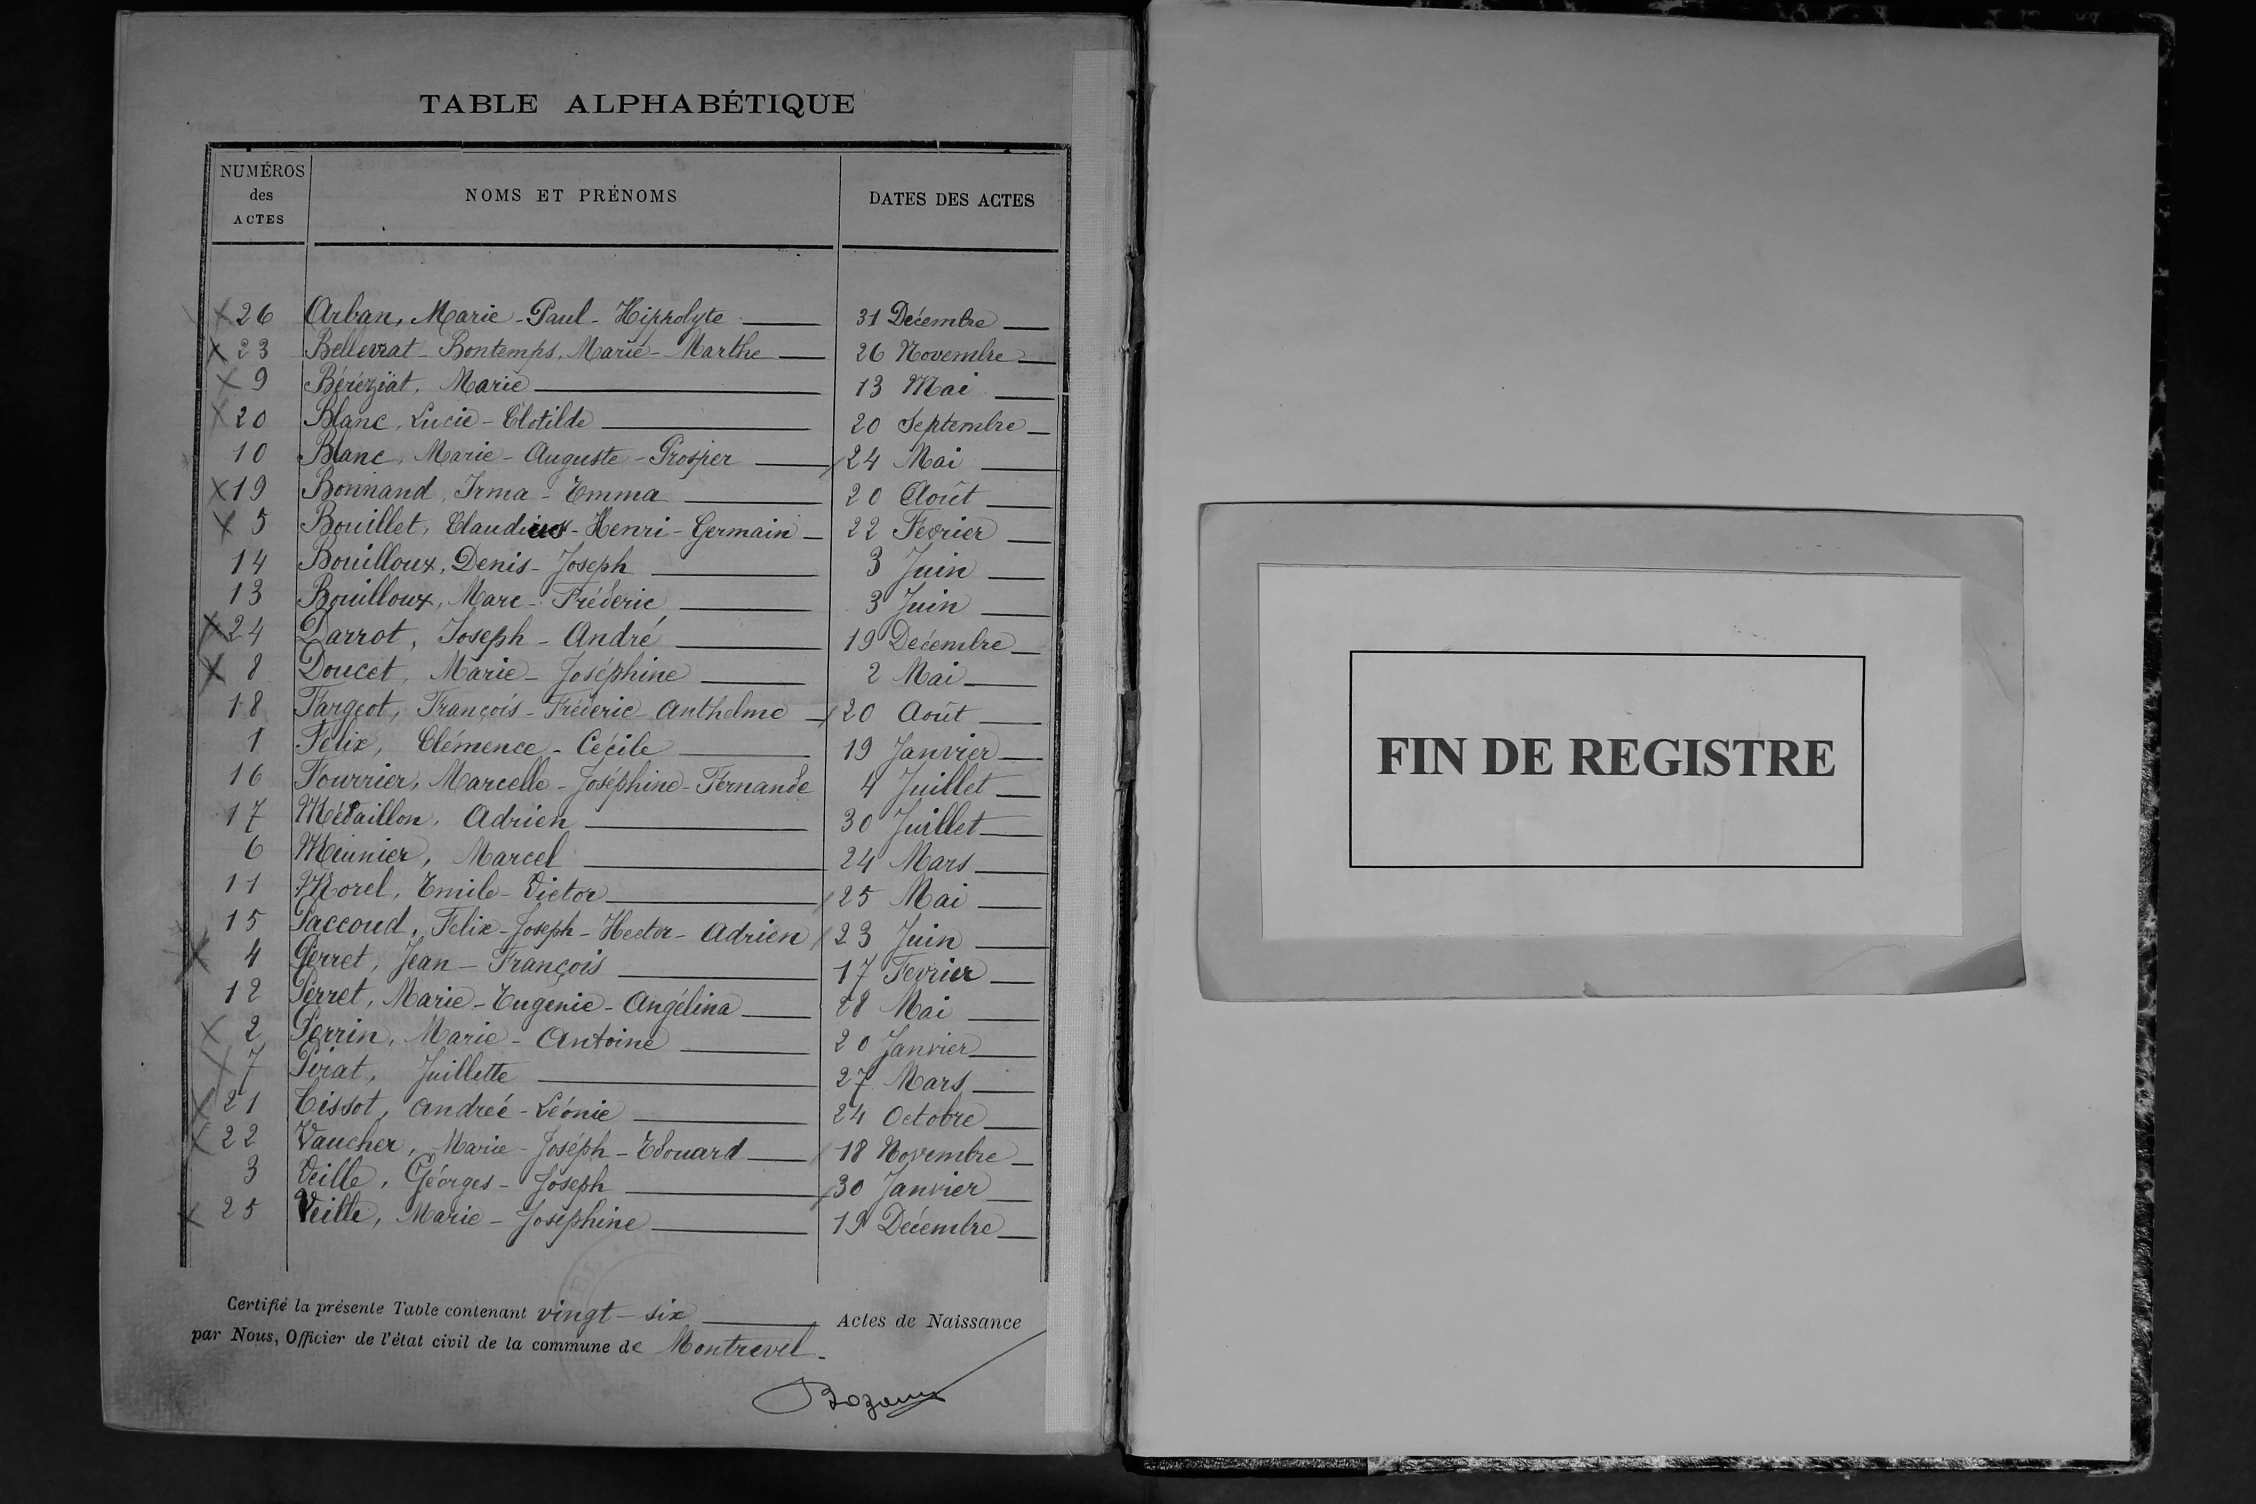 TABLE ALPHABÉTIQUE
NUMÉROS
des
ACTES
NOMS ET PRÉNOMS
DATES DES ACTES
26 Arban, Marie-Paul-Hippolyte 31 Décembre
23 Bellevrat-Bontemps, Marie-Marthe 26 Novembre
9 Béréziat, Marie 13 Mai
20 Blanc, Lucie-Clotilde 20 Septembre
10 Blanc, Marie-Auguste-Prosper 24 Mai
19 Bonnand, Irma-Emma 20 Août
5 Bouillet, Claudius-Henri-Germain 22 Fevrier
14 Bouilloux, Denis-Joseph 3 Juin
13 Bouilloux, Marc-Fréderic 3 Juin
24 Darrot, Joseph-André 19 Décembre
8 Doucet, Marie-Joséphine 2 Mai
18 Fargeot, François-Fréderic-Anthelme 20 Août
1 Felix, Clémence-Cécile 19 Janvier
16 Fourrier, Marcelle-Joséphine-Fernande 4 Juillet
17 Médaillon, Adrien 30 Juillet
6 Meunier, Marcel 24 Mars
11 Morel, Emile-Victor 25 Mai
15 Paccoud, Felix-Joseph-Hector-Adrien 23 Juin
4 Perret, Jean-François 17 Fevrier
12 Perret, Marie-Eugenie-Angélina 28 Mai
2 Perrin, Marie-Antoine 20 Janvier
7 Pirat, Juillette 27 Mars
21 Tissot, Andreé-Léonie 24 Octobre
22 Vaucher, Marie-Joséph-Edouard 18 Novembre
3 Veille, Géorges-Joseph 30 Janvier
25 Veille, Marie-Joséphine 19 Décembre
Certifié la présente Table contenant vingt-six Actes de Naissance
par Nous, Officier de l'état civil de la commune de Montrevel.
FIN DE REGISTRE